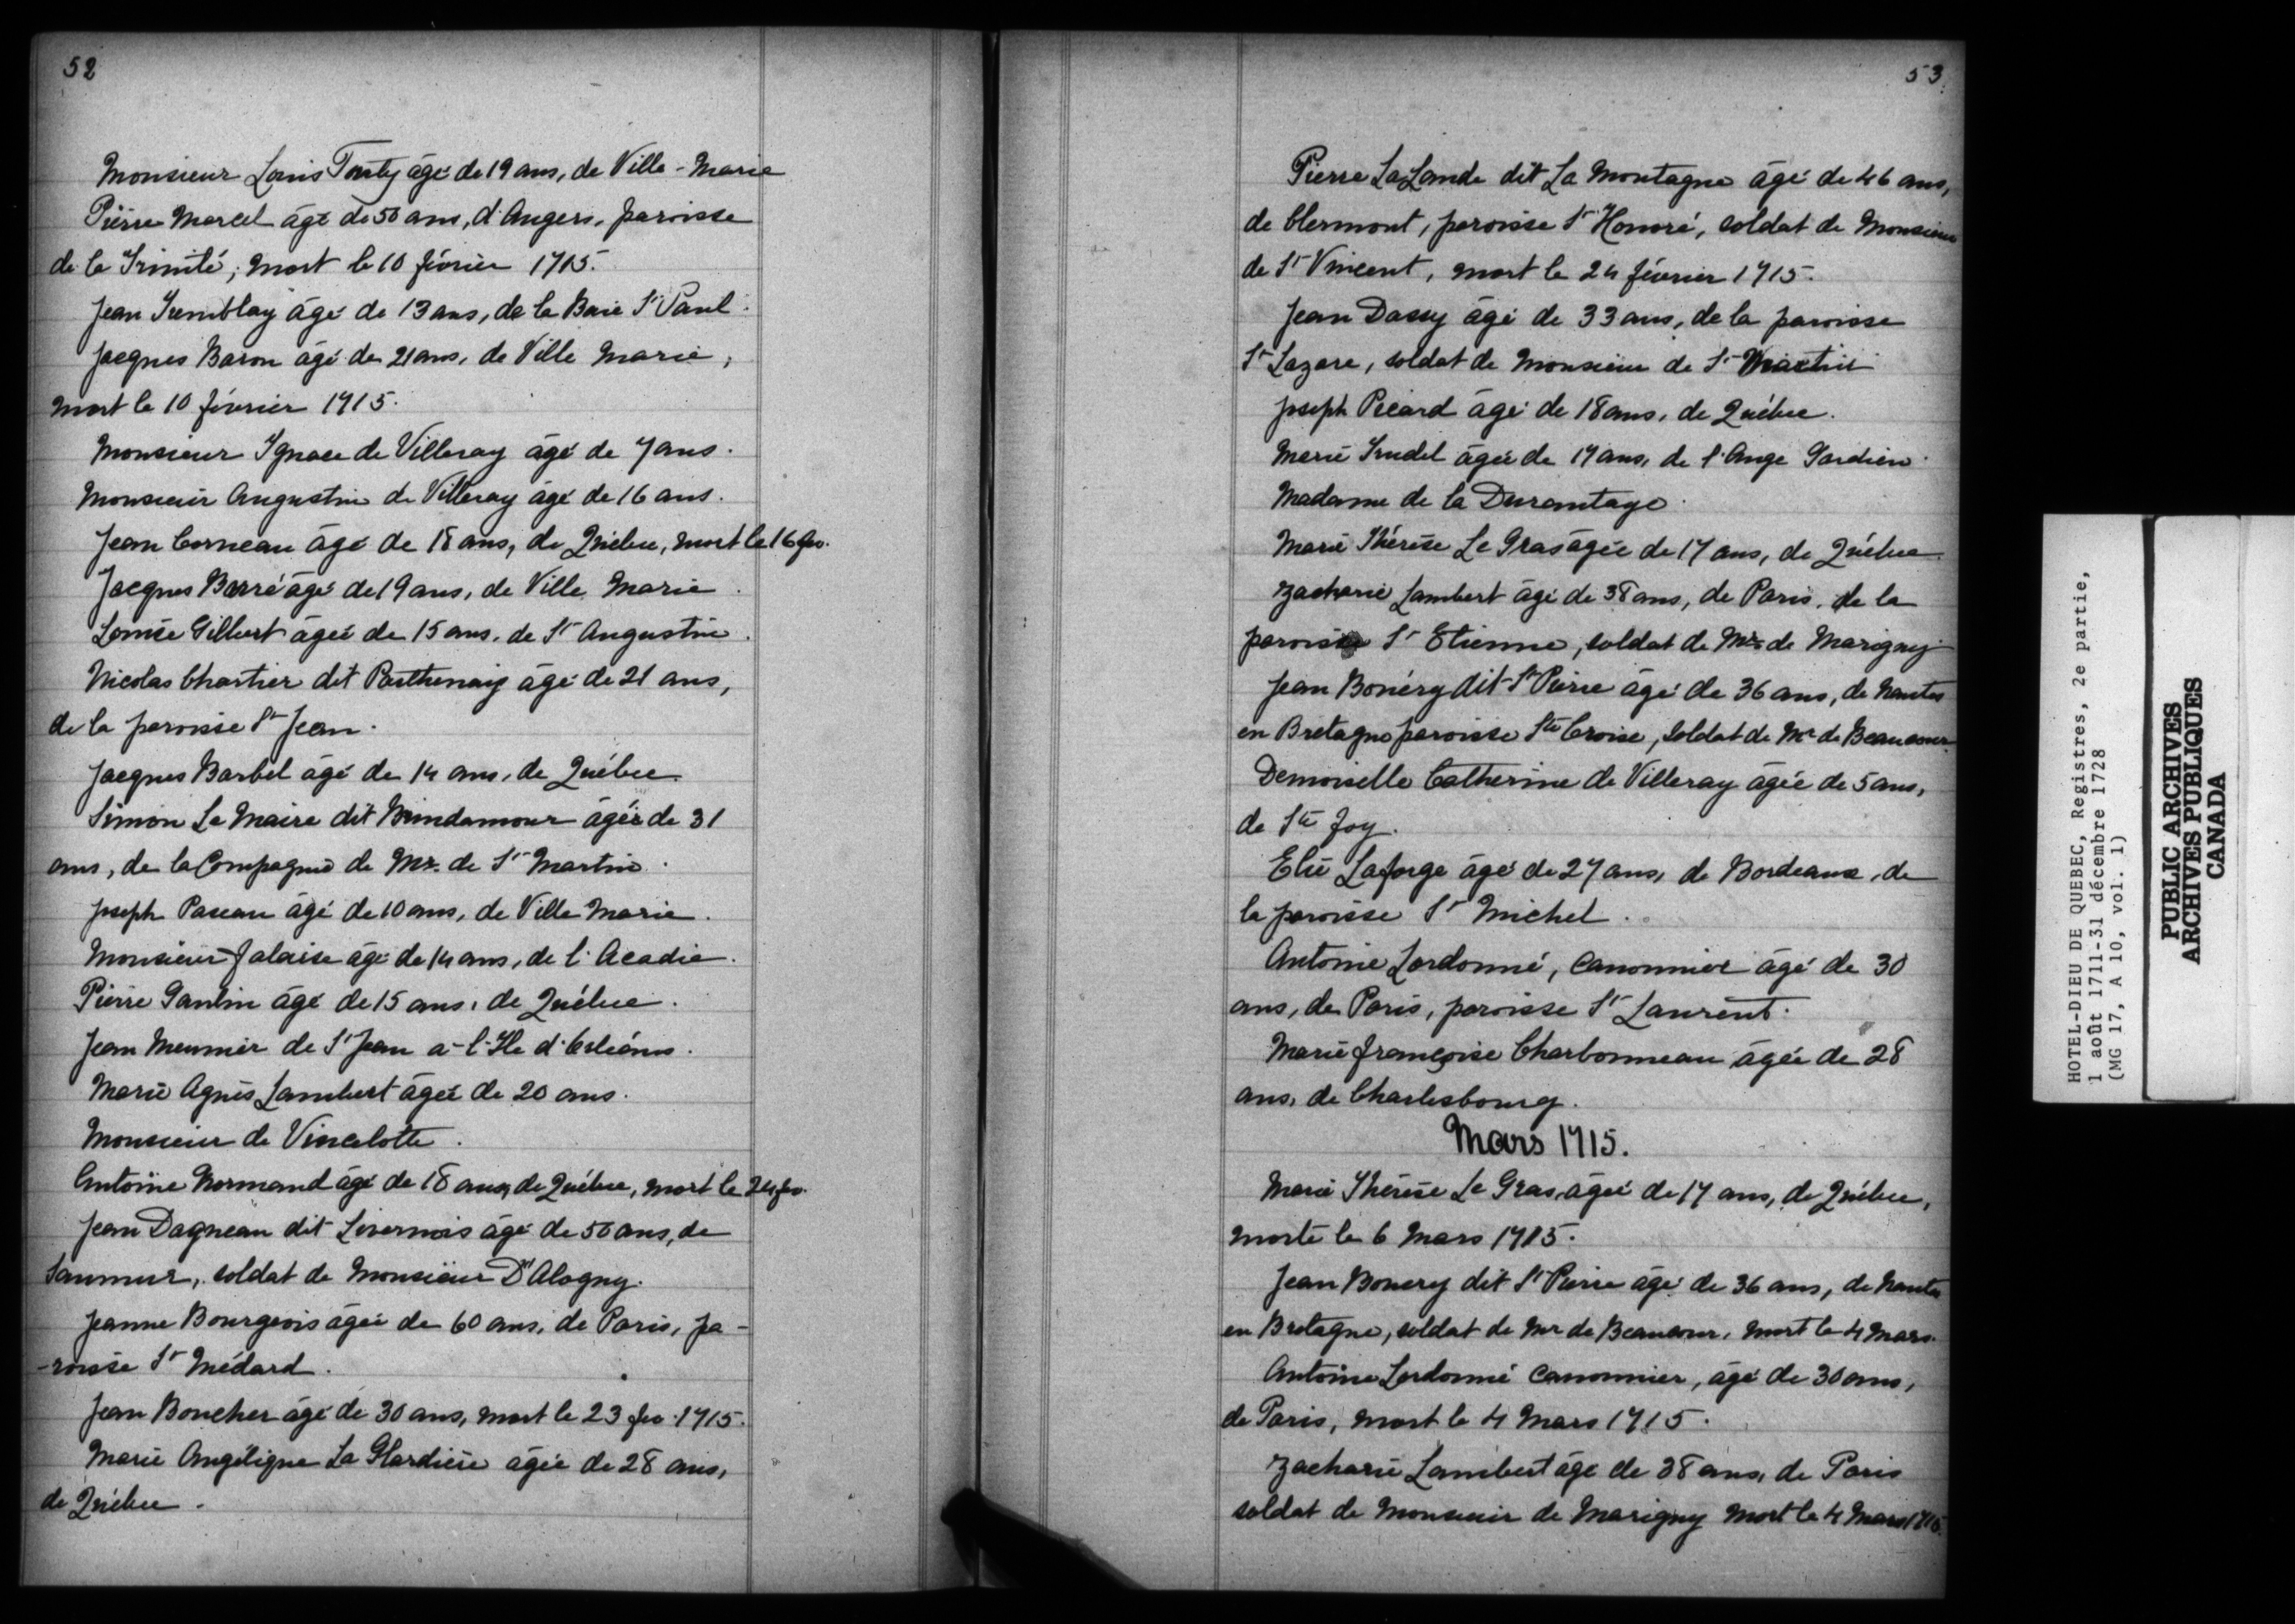 52
Monsieur Louis Tonty âgé de 19 ans, de Ville-Marie
Pierre Marcel âgé de 50 ans, d'Angers, paroisse
de la Trinité, mort le 10 février 1715.
Jean Tremblay âgé de 13 ans, de la Baie St Paul.
Jacques Baron âgé de 21 ans, de Ville Marie,
mort le 10 février 1715.
Monsieur Ignace de Villeray âgé de 7 ans.
Monsieur Augustin de Villeray âgé de 16 ans.
Jean Corneau âgé de 18 ans, de Québec, mort le 16 fev.
Jacques Barré âgé de 19 ans, de Ville Marie.
Louise Gilbert âgée de 15 ans, de St Augustin.
Nicolas Chartier dit Parthenais âgé de 21 ans,
de la paroisse St Jean.
Jacques Barbel âgé de 14 ans, de Québec.
Simon Le Maire dit Brindamour âgé de 31
ans, de la Compagnie de Mr. de St Martin.
Joseph Pascau âgé de 10 ans, de Ville Marie.
Monsieur Falaise âgé de 14 ans, de l'Acadie.
Pierre Gaulin âgé de 15 ans, de Québec.
Jean Meunier de St Jean a-l'Ile d'Orléans.
Marie Agnès Lambert âgée de 20 ans.
Monsieur de Vincelotte.
Antoine Normand âgé de 18 ans, de Québec, mort le 24 fev.
Jean Dagneau dit Livernois âgé de 50 ans, de
Saumur, soldat de Monsieur D'Alogny.
Jeanne Bourgeois âgée de 60 ans, de Paris, pa-
-roisse St Médard.
Jean Boucher âgé de 30 ans, mort le 23 fev. 1715.
Marie Angélique La Glardière âgée de 28 ans,
de Québec.
53
Pierre LaLande dit La Montagne âgé de 46 ans,
de Clermont, paroisse St Honoré, soldat de Monsieur
de St Vincent, mort le 24 février 1715.
Jean Dassy âgé de 33 ans, de la paroisse
St Lazare, soldat de Monsieur de St Martin
Joseph Picard âgé de 18 ans, de Québec.
Marie Trudel âgée de 19 ans, de l'Ange Gardien.
Madame de la Durantaye.
Marie Thérèse Le Gras âgée de 17 ans, de Québec.
Zacharie Lambert âgé de 38 ans, de Paris, de la
paroisse St Etienne, soldat de Mr. de Marigny
Jean Bonéry dit St Pierre âgé de 36 ans, de Nantes
en Bretagne paroisse Ste Croise, soldat de Mr de Beaucour.
Demoiselle Catherine de Villeray âgée de 5 ans,
de Ste Foy.
Elie Laforge âgé de 27 ans, de Bordeaux, de
la paroisse St Michel.
Antoine Lordonné, Canonnier âgé de 30
ans, de Paris, paroisse St Laurent.
Marie Françoise Charbonneau âgée de 28
ans, de Charlesbourg.
Mars 1715.
Marie Thérèse Le Gras, âgée de 17 ans, de Québec,
morte le 6 Mars 1715.
Jean Bonery dit St Pierre âgé de 36 ans, de Nantes
en Bretagne, soldat de Mr de Beaucour, mort le 4 Mars.
Antoine Lordonné Canonnier, âgé de 30 ans,
de Paris, mort le 4 Mars 1715.
Zacharie Lambert âgé de 38 ans, de Paris
soldat de Monsieur de Marigny mort le 4 Mars 1715.
HOTEL-DIEU DE QUEBEC, Registres, 2e partie,
1 août 1711-31 décembre 1728
(MG 17, A 10, vol. 1)
PUBLIC ARCHIVES
ARCHIVES PUBLIQUES
CANADA